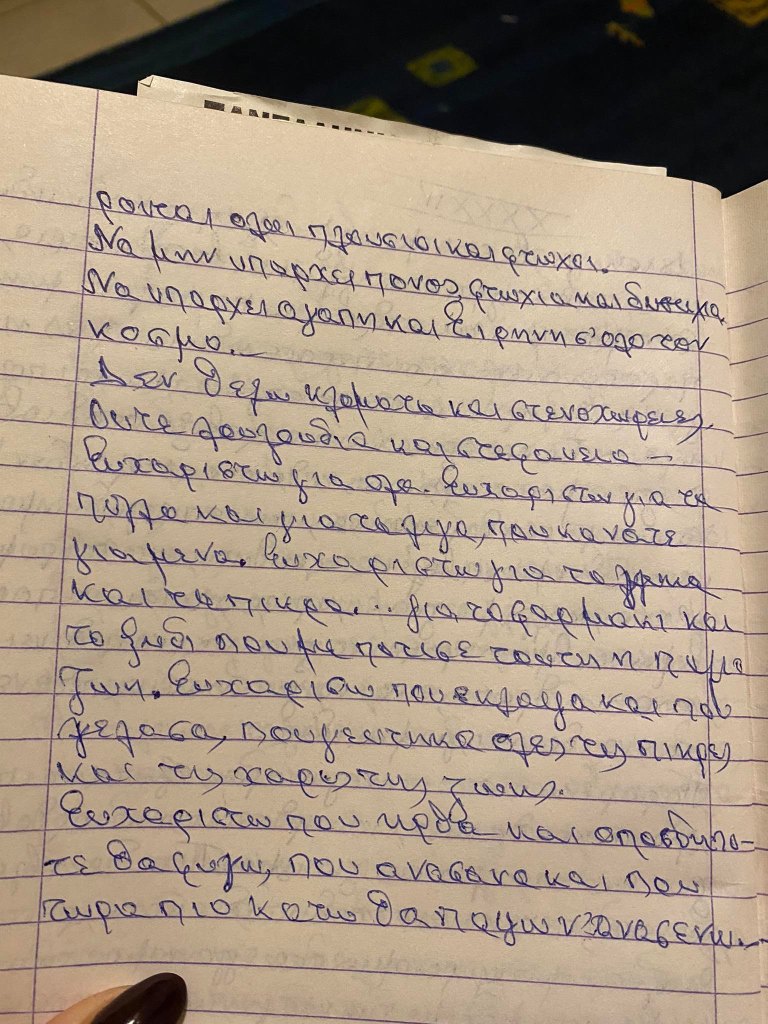 ρονται ολοι πλουσιοι και φτωχοι.
Να μην υπαρχει πονος, φτωχια και δυστυχια
Να υπαρχει αγαπη και Ειρηνη σ' ολο τον
κοσμο.—
Δεν θελω κλαματα και στενοχωριες,
Ουτε λουλουδια και στεφανεια —
Ευχαριστω για ολα. Ευχαριστω για τα
πολλα και για τα λιγα, που κανατε
για μενα. Ευχαριστω για το
και τα πικρα... για το φαρμακι και
το ξυδι που με ποτισε τουτη η
ζωη. Ευχαριστω που εκλαψα και που
γελασα, που γευτηκα ολες τις πικρες
και τις χαρες της ζωης.
Ευχαριστω που ηρθα και οποσδηπο-
τε θα φυγω, που ανασανα και που
τωρα πιο κατω θα παψω ν' ανασενω.—